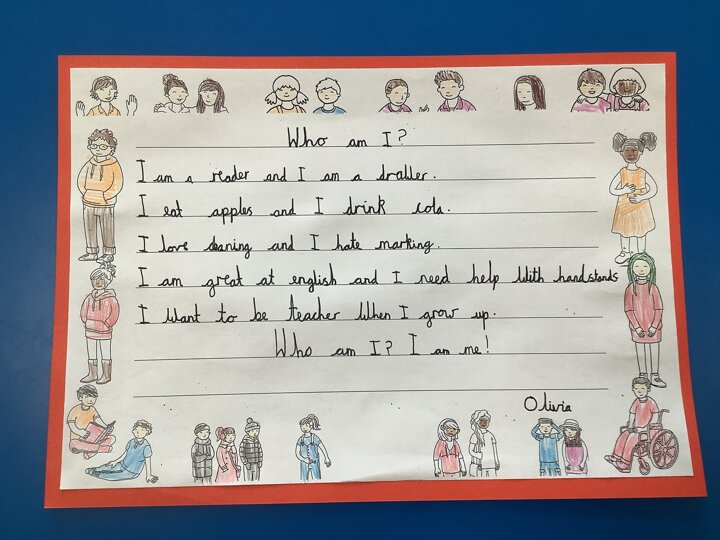 Who am I?
I am a reader and I am a drawer.
I eat apples and I drink cola.
I love and I hate marking.
I am great at english and I need help with handstands
I want to be teacher when I grow up.
Who am I? I am me!
Olivia